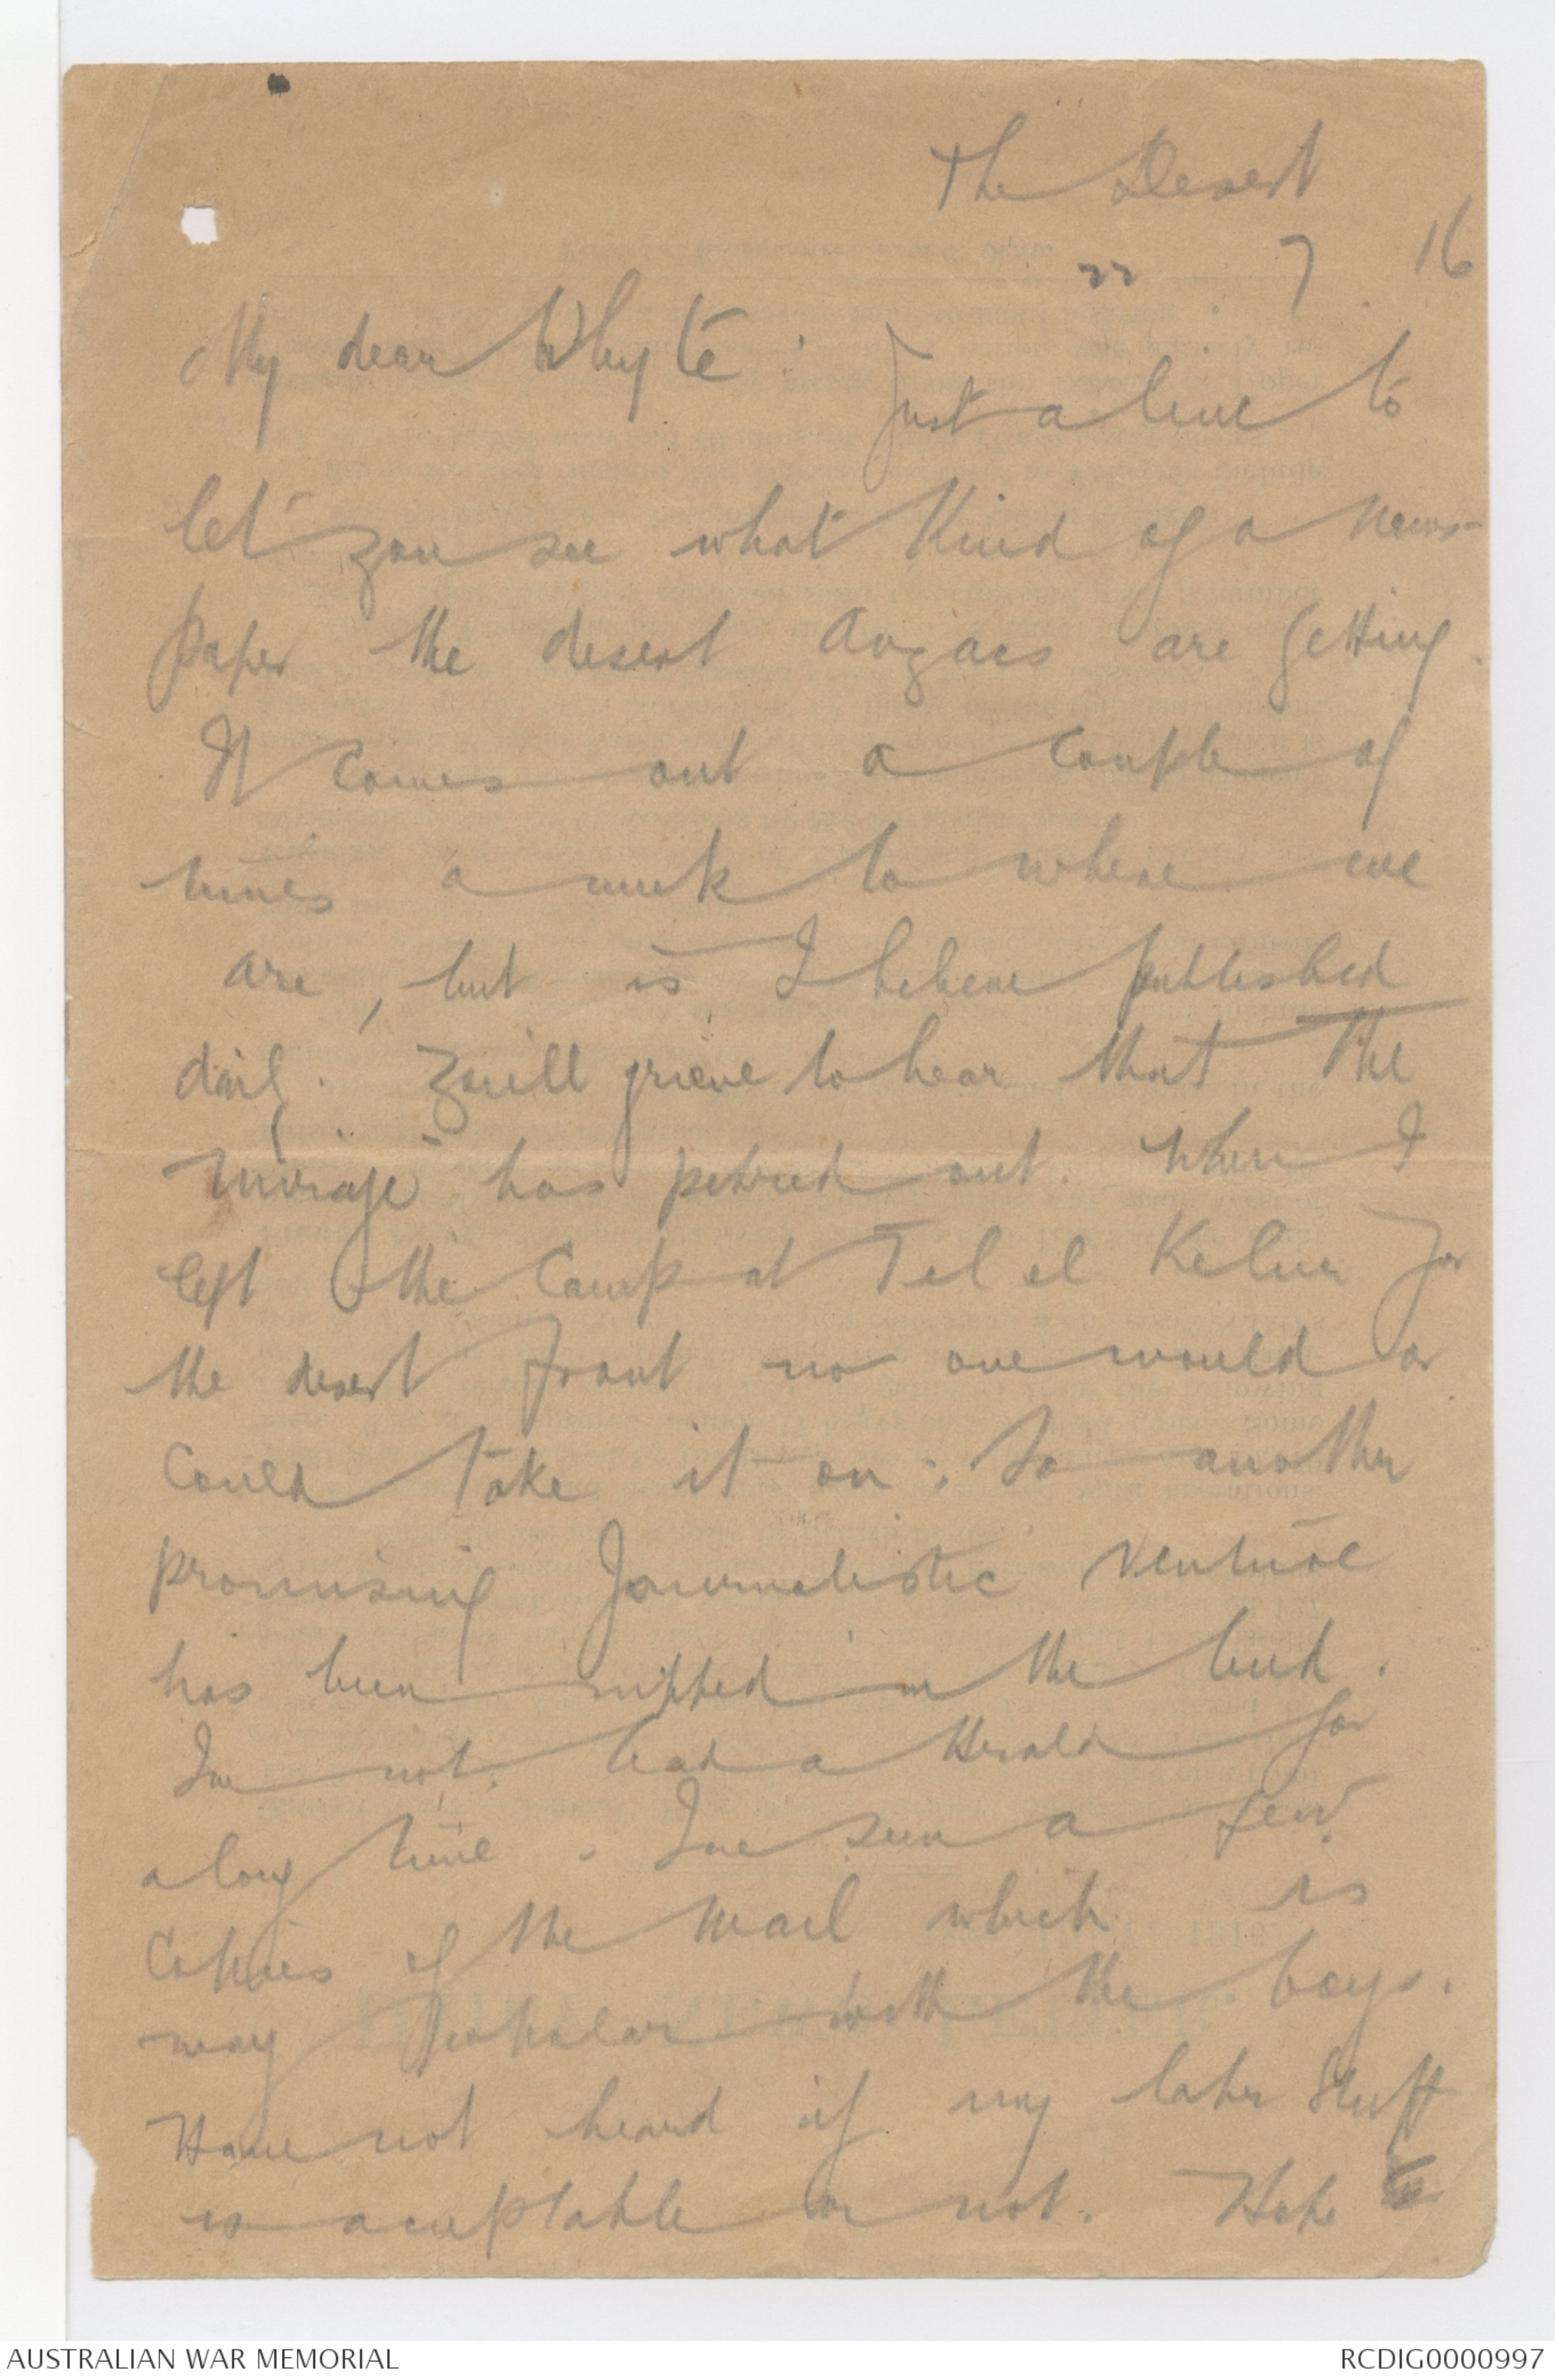 The Desert
22 7 16
My dear Whyte:
Just a line to
let you see what kind of a news-
paper the desert Anzacs are getting.
It comes out a couple of
times a week to where we
are, but is I believe published
daily. You'll grieve to hear that "The
Mirage" has petered out. When I
left the Camp at Tel el Kebir for
the desert front no one would or
could take it on: So another
promising Journalistic venture
has been nipped in the bud.
I've not had a Herald for
a long time. I've seen a few
copies of the Mail which is
very popular with the boys.
Have not heard if my later stuff
is acceptable or not. Hope
AUSTRALIAN WAR MEMORIAL
RCDIG0000997